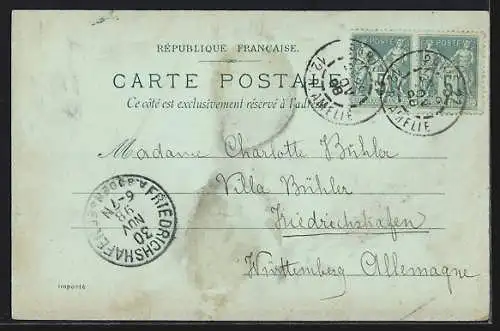 RÉPUBLIQUE FRANÇAISE.
CARTE POSTALE
Ce côté est exclusivement réservé à l'adresse
POSTE
AMÉLIE
98
Madame Charlotte Bühler
Villa Bühler
Friedrichshafen
Württemberg Allemagne
FRIEDRICHSHAFEN
30
NOV
98
6-7N
Importé